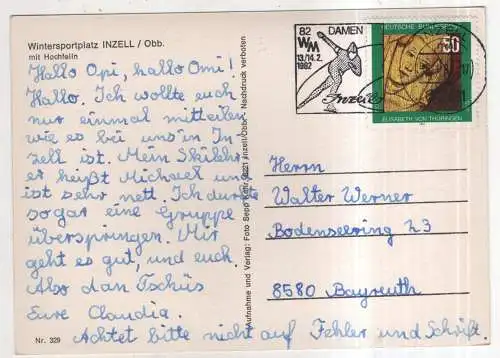 Wintersportplatz INZELL / Obb.
mit Hochfelln
Hallo Opi, hallo Omi!
Hallo. Ich wollte euch
nur einmal mitteilen
wie es bei uns in In-
zell ist. Mein Skilehr-
er heißt Michael und
ist sehr nett. Ich durfte
sogar eine Gruppe
überspringen. Mir
geht es gut, und euch.
Also dan Tschüs
Eure Claudia.
Achtet bitte nicht auf Fehler und Schrift.
Nr. 329
Aufnahme und Verlag: Foto Sepp 8221 Inzell/Obb. - Nachdruck verboten
82
WM
13./14.2.
1982
DAMEN
Inzell
DEUTSCHE BUNDESPOST
50
ELISABETH VON THÜRINGEN
Herrn
Walter Werner
Bodenseering 23
8580 Bayreuth